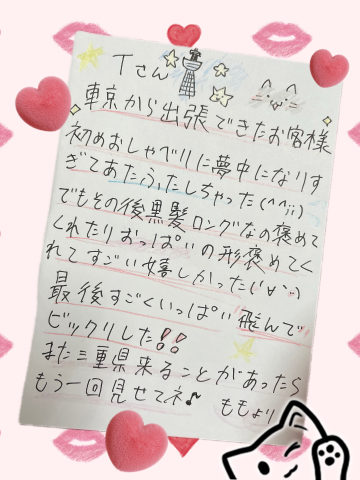 Tさん
東京から出張できたお客様
初めおしゃべりに夢中になりす
ぎてあたふたしちゃった(^^;;)
でもその後黒髪ロングなの褒めて
くれたりおっぱいの形褒めてく
れてすごい嬉しかった(´∀`)
最後すごくいっぱい飛んで
ビックリした!!
また三重県来ることがあったら
もう一回見せてネ♪
ももより